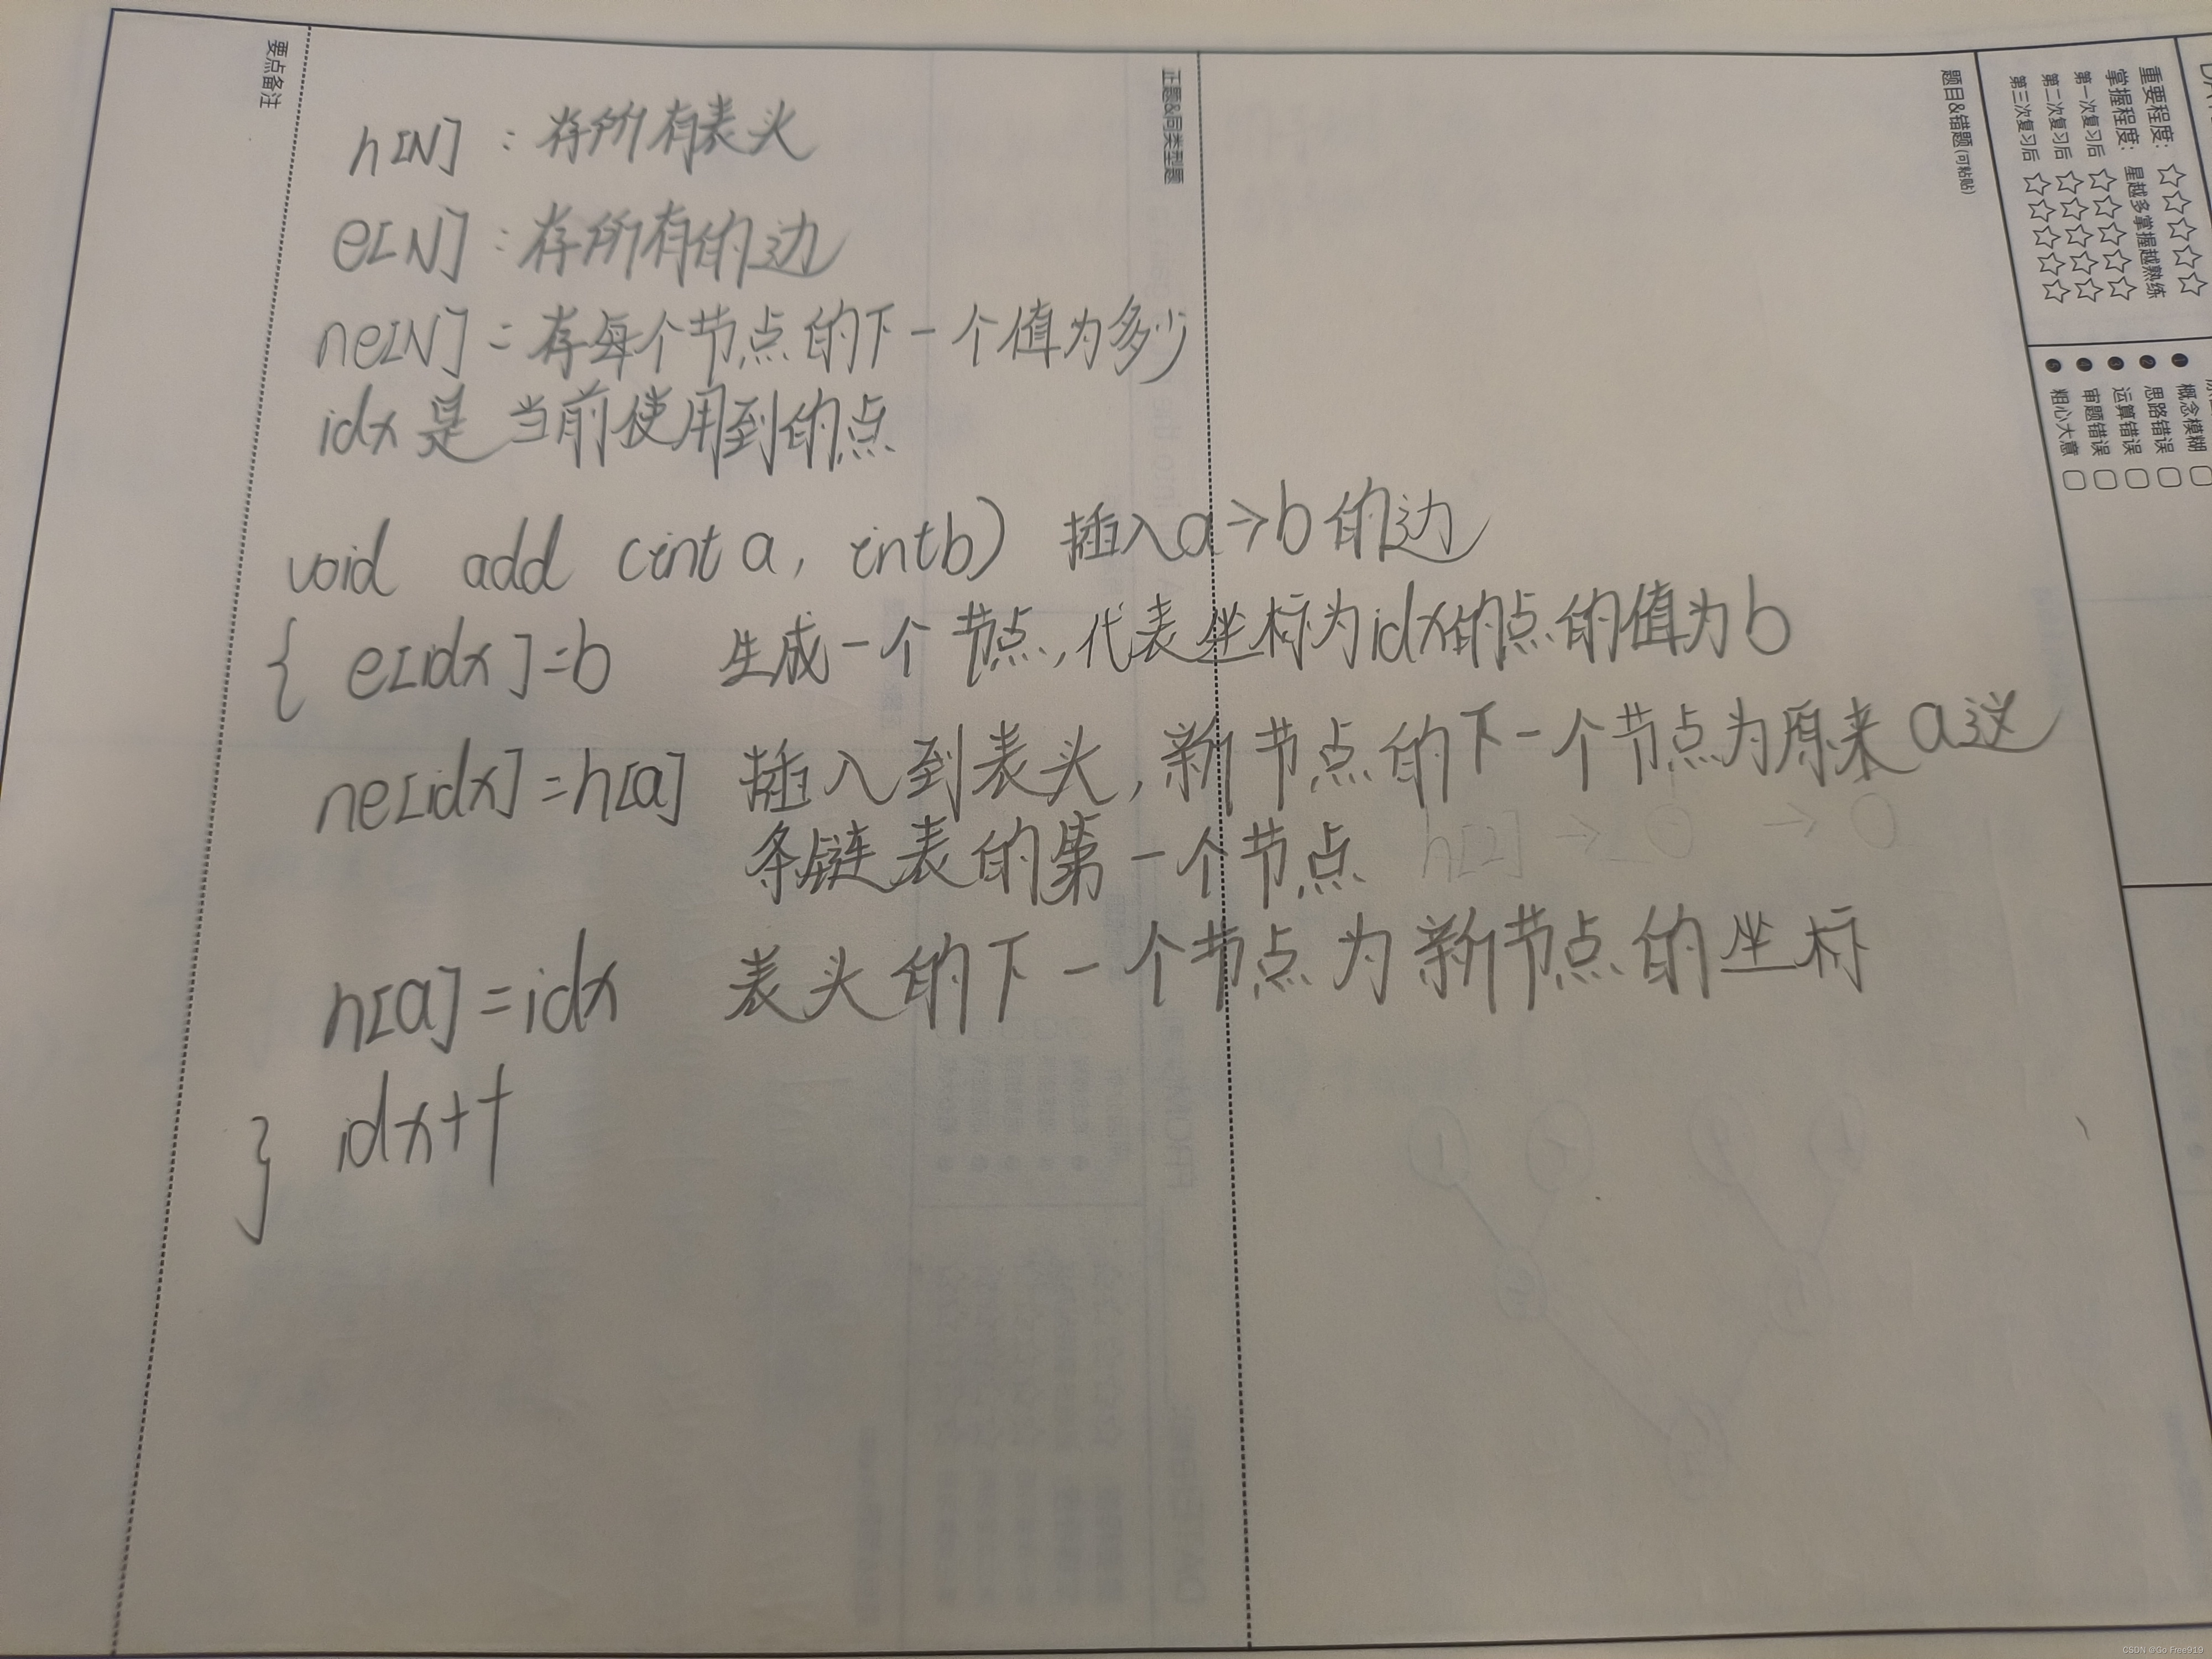 要点备注
正题&同类型题
题目&错题(可粘贴)
重要程度: ☆☆☆☆☆
掌握程度: 星越多掌握越熟练
第一次复习后 ☆☆☆☆☆
第二次复习后 ☆☆☆☆☆
第三次复习后 ☆☆☆☆☆
❶ 概念模糊 □
❷ 思路错误 □
❸ 运算错误 □
❹ 审题错误 □
❺ 粗心大意 □
h[N] : 存所有表头
e[N] : 存所有的边
ne[N] : 存每个节点的下一个值为多少
idx 是 当前使用到的点
void add (int a, int b) 插入a→b的边
{ e[idx]=b 生成一个节点,代表坐标为idx的点的值为b
ne[idx]=h[a] 插入到表头,新节点的下一个节点为原来a这
条链表的第一个节点 h[2] → 0 → 0
h[a]=idx 表头的下一个节点为新节点的坐标
idx++
}
CSDN @Go Free919